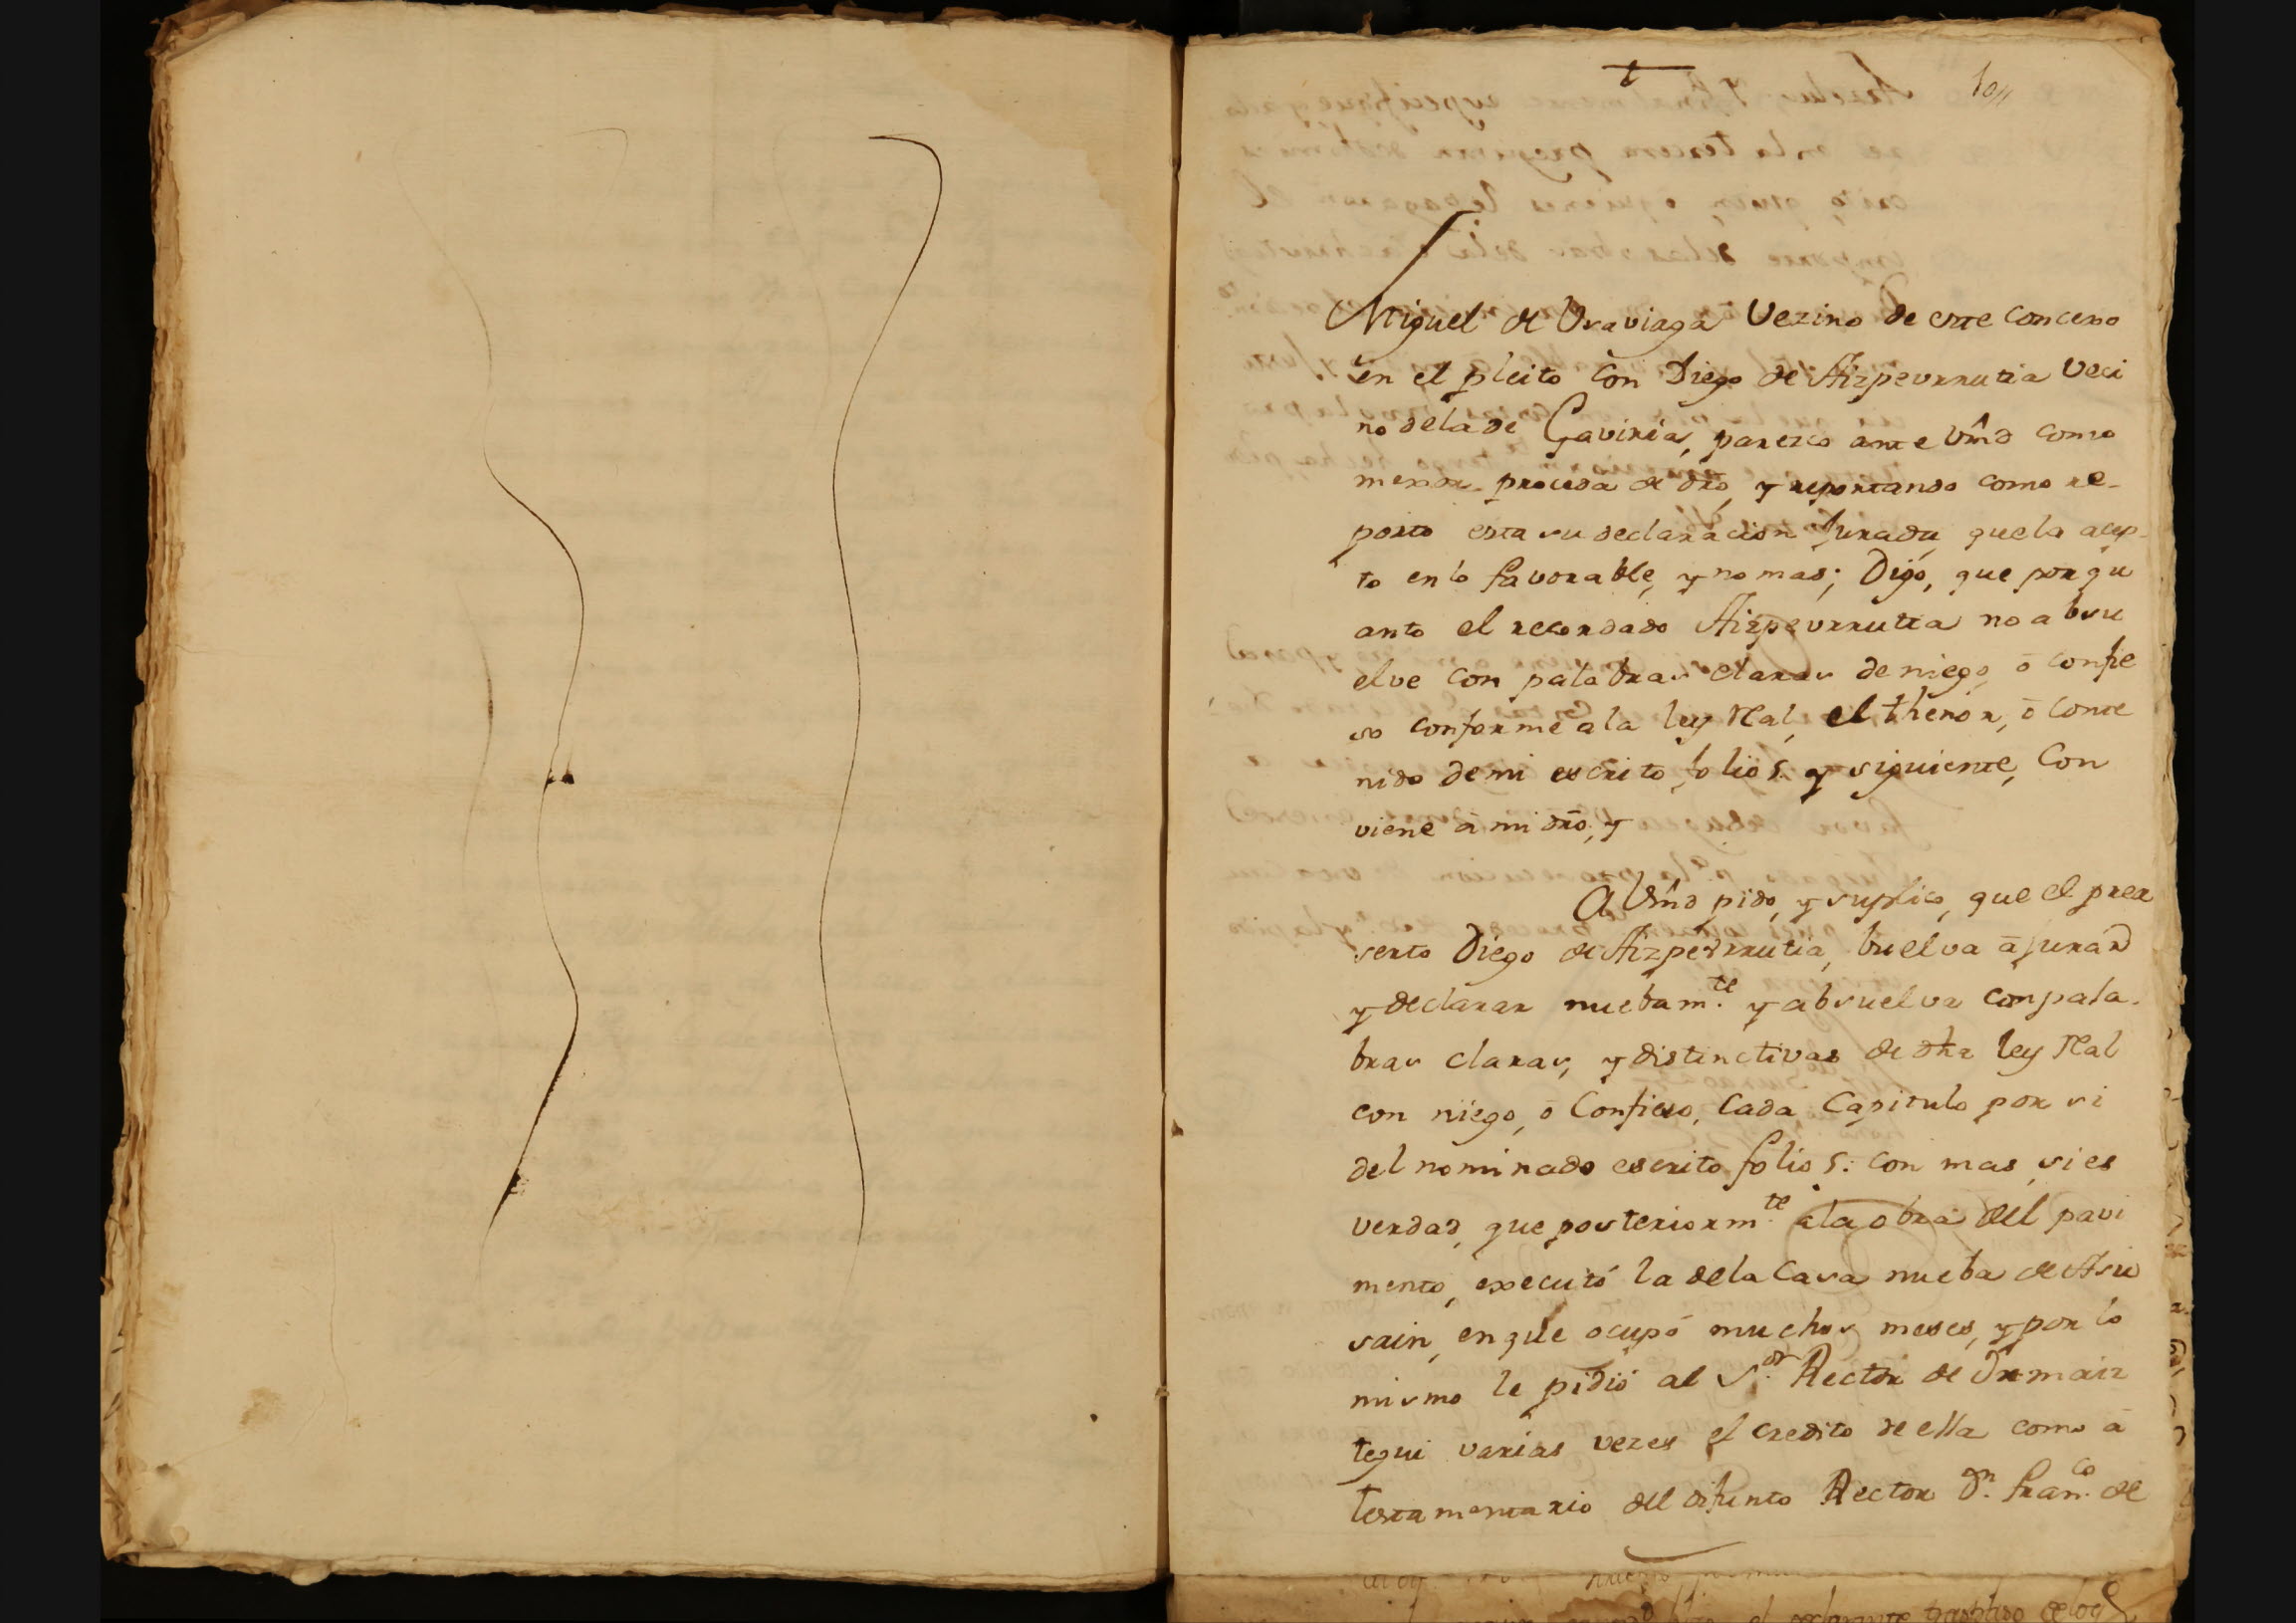 t
10
Miguel de Vraviaga Vezino de este concexo
en el pleito con Diego de Aizpeurrutia veci
no dela de Gaviria, parezco ante Vmd como
mexor proceda de dro, y reportando como re-
porto esta su declaracion Jurada, que la acep-
to en lo favorable, y no mas; Digo, que por qu
anto el recordado Aizpeurrutia no absu
elve con palabras claras de niego, ó confie
so conforme a la ley Real, el thenor, ó conte
nido de mi escrito folio 5. y siguiente, Con
viene á mi dro, y
A Vmd pido, y suplico, que el prex
serto Diego de Aizpeurrutia, buelva á jurar
y declarar nuebam.te y absuelva con pala-
bras claras, y distinctivas de dha ley Real
con niego, ó Confieso, Cada Capitulo por si
del nominado escrito folio 5: con mas, si es
verdad, que posteriorm.te a la obra del pavi
mento, executó la dela Casa nueba de Asu
sain, en que ocupó muchos meses, y por lo
mismo le pidió al S.or Rector de Ormaiz
tegui varias vezes el credito de ella como á
testamentario del difunto Rector D.n Fran.co de
el declarante